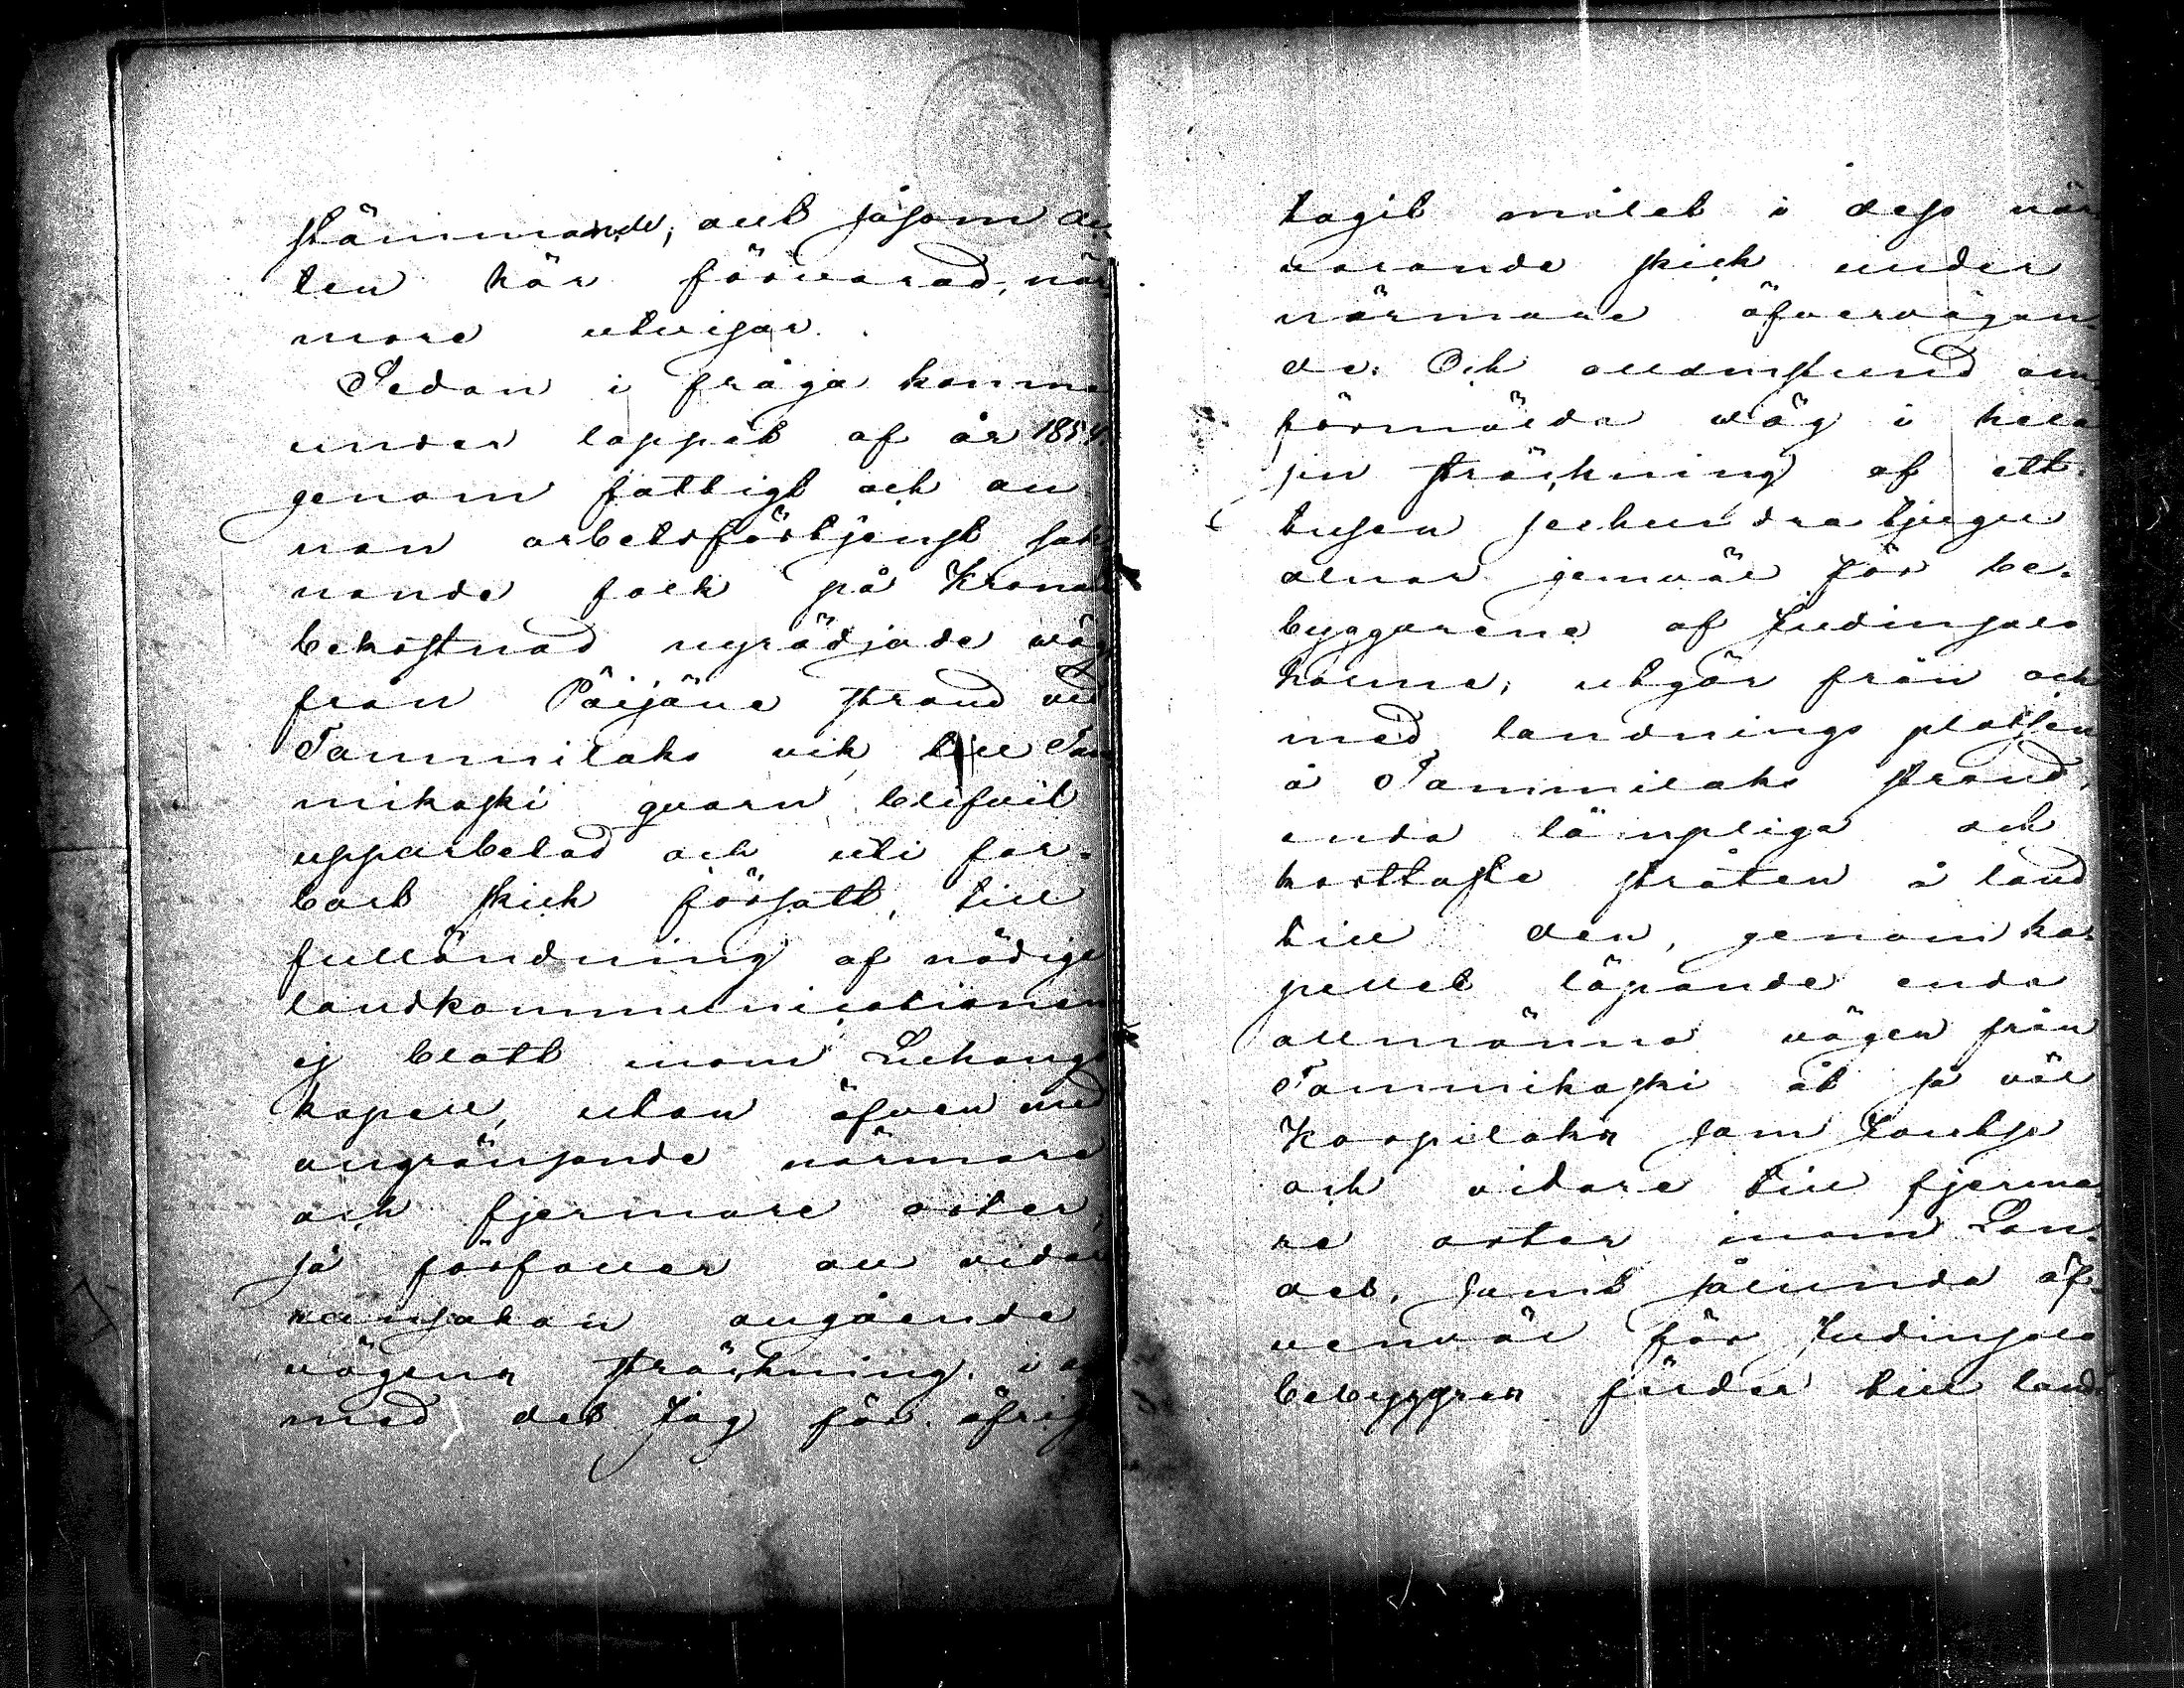 stämmande, allt såsom ac-
ten här förvarad, när
mare utvisar.
Sedan i fråga komne
under loppet af år 1854
genom fattigt och an
nan arbetsförtjenst sak
nande folk på Kronans
bekostnad nyrödjade väg
från Päijäne strand vid
Tammilaks vik till Tam
mikoski qvarn blifvit
upparbetad och uti far-
bart skick försatt, till
fulländning af nödige
landkommunicationen
ej blott inom Luhango
kapell, utan äfven med
angränsande närmare
och fjermare orter,
så förfaller all vidare
angående
vägens sträckning, i
med det Jag för öfrigt
tagit målet i dess när
varande skick under
närmare öfvervägan-
de. Och alldenstund om-
förmälda wäg i hela
sin sträckning af ett
tusen sexhundratjugu
alnar jemväl för be-
byggarene af Judinsalo
holme, utgör från och
med landnings platsen
å Tammilaks strand,
enda lämpliga och
kortaste stråten å land
till den, genom ka-
pellet löpande enda
allmänna vägen från
Tammikoski åt så väl
Korpilaks som Joutsa
och vidare till fjerma-
re orter inom Lan-
det, samt sålunda äf-
venväl för Judinsalo
bebyggren länder till land-